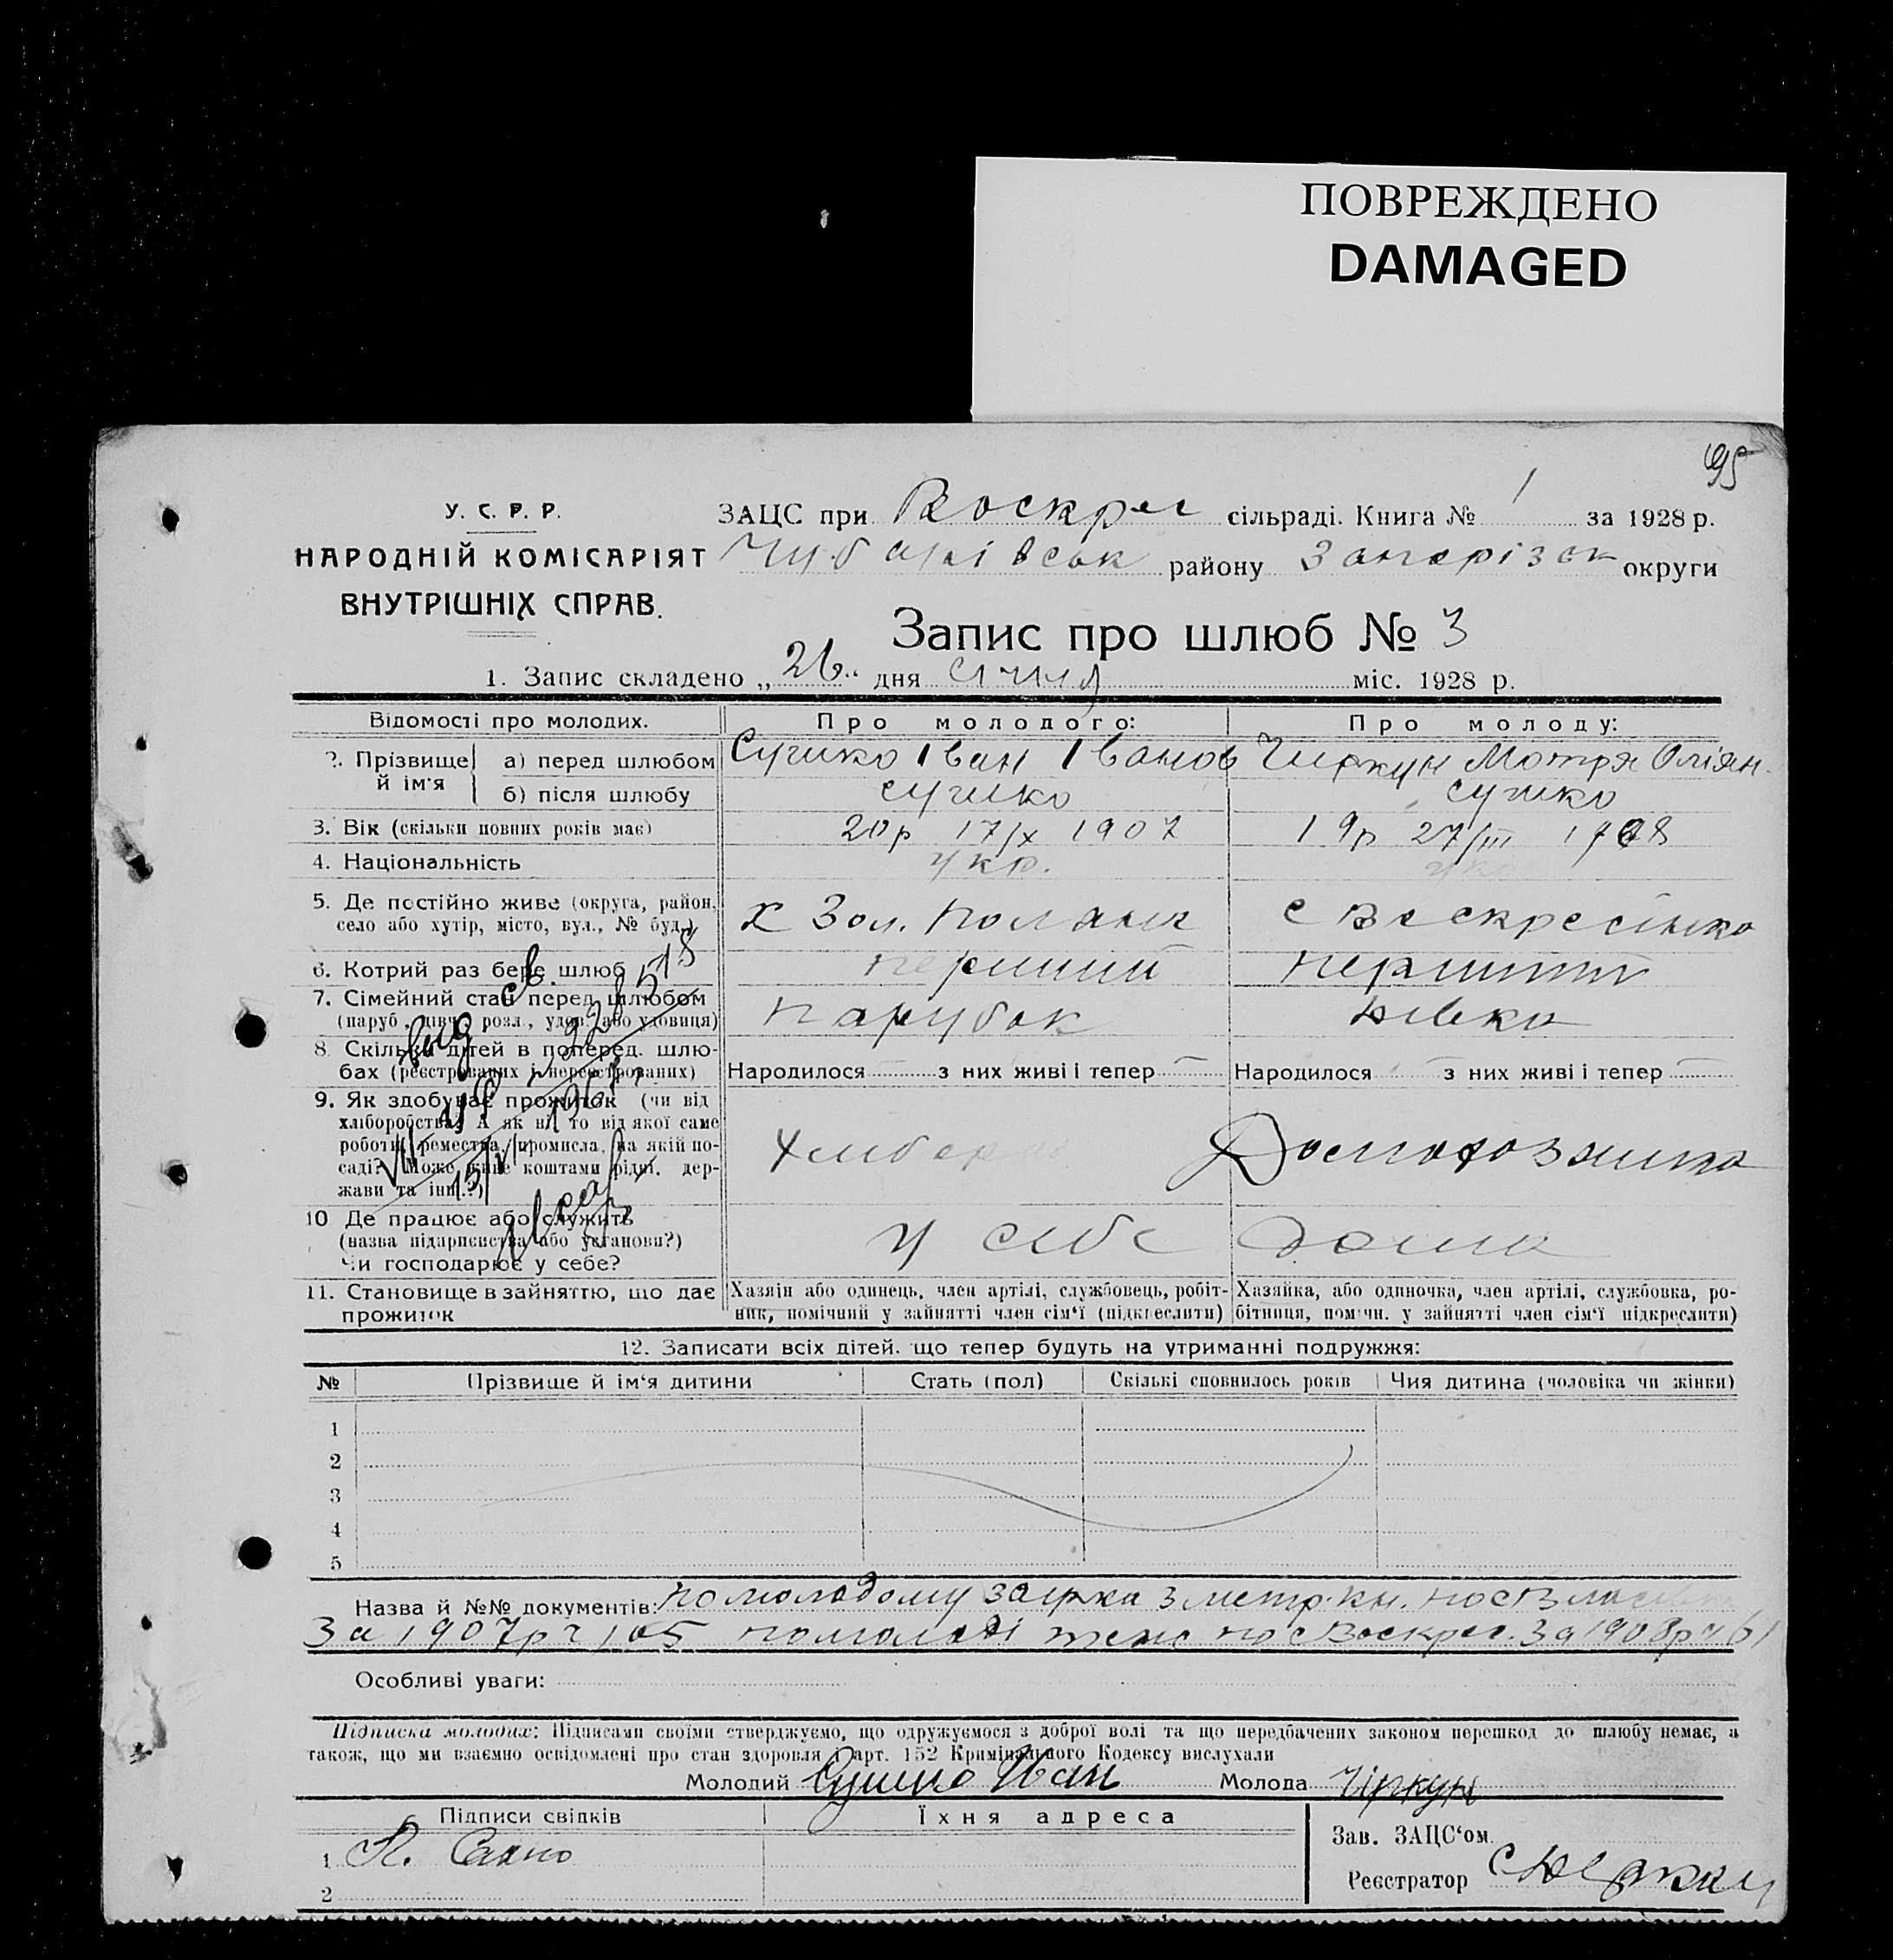 ПОВРЕЖДЕНО
DAMAGED
95
У. С. Р. Р.
НАРОДНІЙ КОМІСАРІЯТ
ВНУТРІШНІХ СПРАВ.
ЗАЦС при Воскрес сільраді. Книга № 1 за 1928 р.
Чубарівськ району Запорізьк округи
Запис про шлюб № 3
1. Запис складено „26" дня січня міс. 1928 р.
Відомості про молодих. Про молодого: Про молоду:
2. Прізвище й ім'я а) перед шлюбом Сушко Іван Іванов Чиркун Мотря Омʼян.
б) після шлюбу Сушко Сушко
3. Вік (скільки повних років має) 20р 17/X 1907 19р 27/III 1908
4. Національність укр. укр
5. Де постійно живе (округа, район, село або хутір, місто, вул., № буд.) х Зол. Поляна с Воскресінка
6. Котрий раз бере шлюб перший перший
7. Сімейний стан перед шлюбом (паруб., дівч., розл., удов. або удовиця) парубок дівка
8. Скільки дітей в поперед. шлюбах (реєстрованих і нереєстрованих) Народилося з них живі і тепер Народилося з них живі і тепер
9. Як здобуває прожиток (чи від
хліборобства? А як ні, то від якої саме
роботи, ремества, промисла, на якій по-
саді? Може живе коштами рідні, дер-
жави та інш.?) Хлібороб Домогозяйка
10 Де працює або служить
(назва підприємства або установи?)
Чи господарює у себе? у себе дома
11. Становище в зайняттю, що дає прожиток
Хазяїн або одинець, член артілі, службовець, робіт-
ник, помічний у зайнятті член сім'ї (підкреслити)
Хазяйка, або одиночка, член артілі, службовка, ро-
бітниця, помічн. у зайнятті член сім'ї підкреслити)
12. Записати всіх дітей, що тепер будуть на утриманні подружжя:
№ Прізвище й ім'я дитини Стать (пол) Скількі сповнилось років Чия дитина (чоловіка чи жінки)
1
2
3
4
5
Назва й №№ документів: по молодому
За 1907р ч 105 по молоді теж по с Воскрес. За 1908р ч 61
Особливі уваги:
Підписка молодих: Підписами своїми стверджуємо, що одружуємося з доброї волі та що передбачених законом перешкод до шлюбу немає, а
також, що ми взаємно освідомлені про стан здоровля і арт. 152 Кримінального Кодексу вислухали
Молодий Сушко Иван Молода Чіркун
Підписи свідків Їхня адреса
1
2
Зав. ЗАЦС'ом
Реєстратор